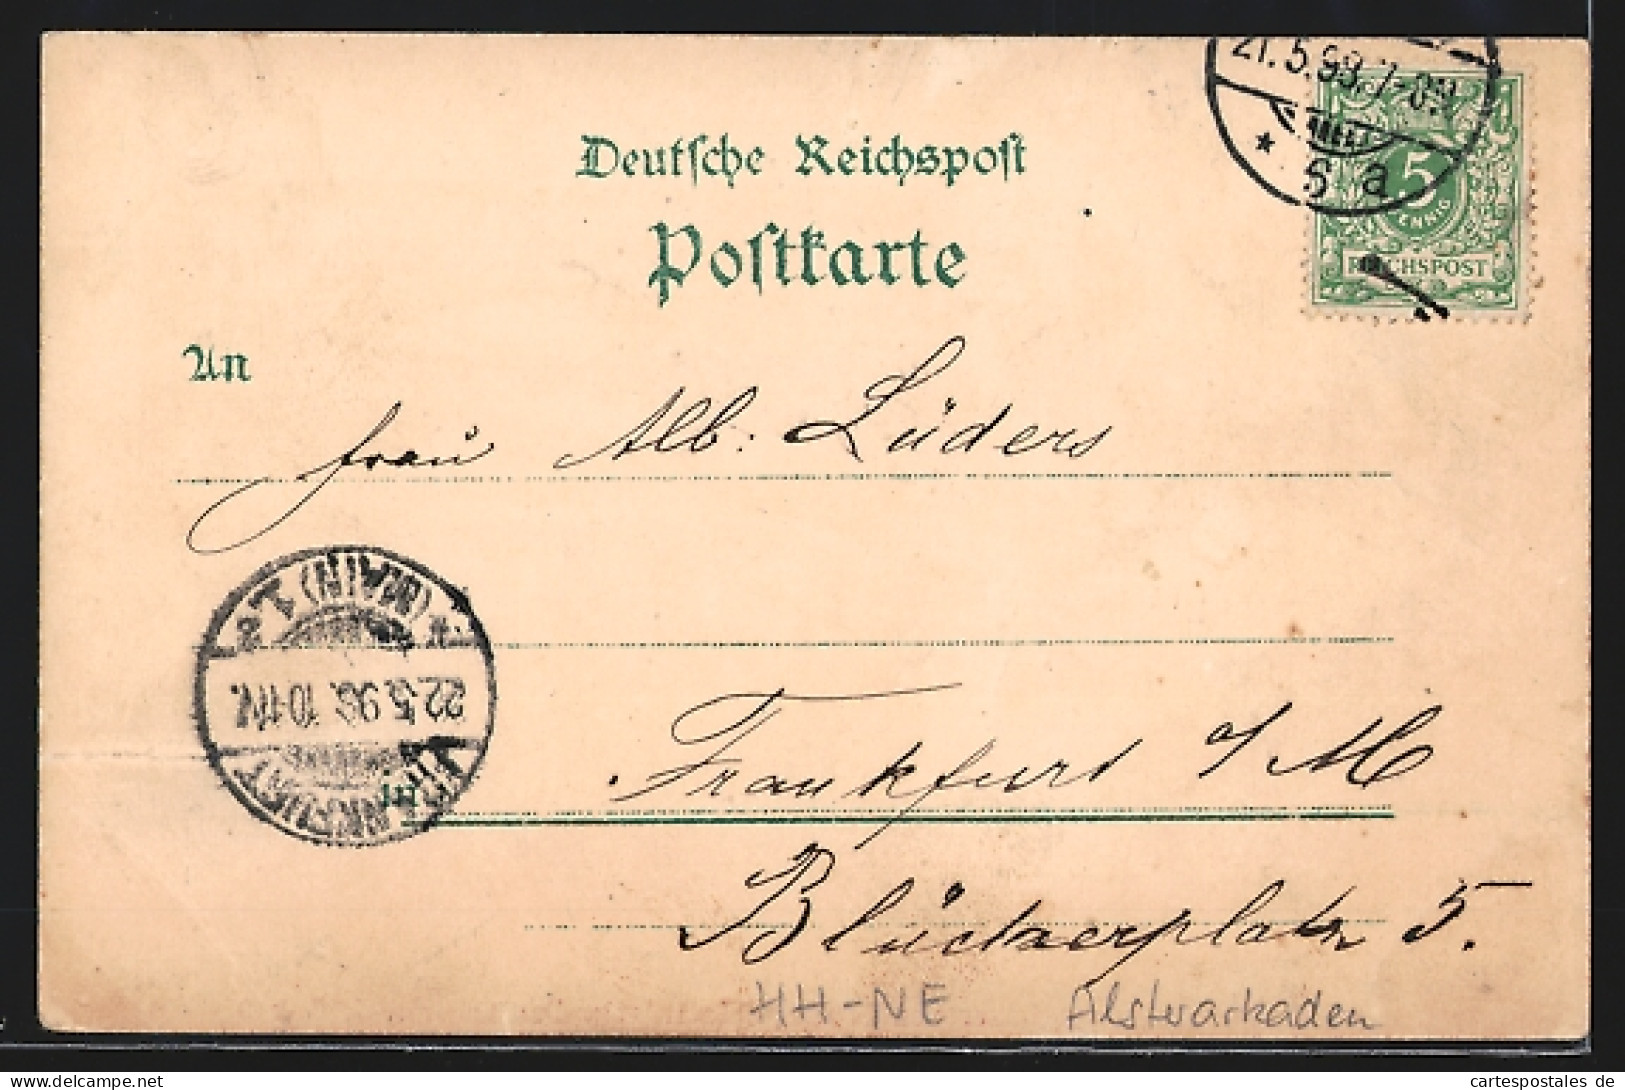 21.5.98.7-8N
* 5 a
5
PFENNIG
REICHSPOST
Deutsche Reichspost
Postkarte
An
Frau Alb. Lüders
* (MAIN) 1. *
22.5.98. 10-11V.
FRANKFURT
in
Frankfurt a/M
Blücherplatz 5.
HH-NE Alsterarkaden
cartespostales de